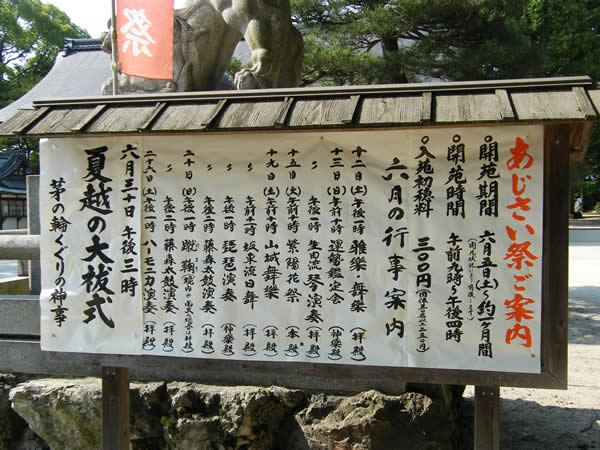 祭
あじさい祭ご案内
◦開苑期間 六月五日(土)〜約一ヶ月間
◦開苑時間 午前九時〜午後四時
◦入苑初穂料 三〇〇円
六月の行事案内
十二日(土)午後一時 雅樂・舞樂(拝殿)
十三日(日)午前十時 運勢鑑定会(神樂殿)
〃 午後一時 生田流箏演奏(拝殿)
十五日(火)午前十時 紫陽花祭(本殿)
十九日(土)午後一時 山城舞樂(拝殿)
〃 午前十一時 坂東流日舞(拝殿)
〃 午後一時 琵琶演奏(神樂殿)
〃 午後二時 藤森太鼓演奏(拝殿)
二十日(日)午後一時 蹴鞠
〃 午後三時 藤森太鼓演奏(拝殿)
二六日(土)午後一時 ハーモニカ演奏(拝殿)
夏越の大祓式
六月三十日 午後三時
茅の輪くぐりの神事